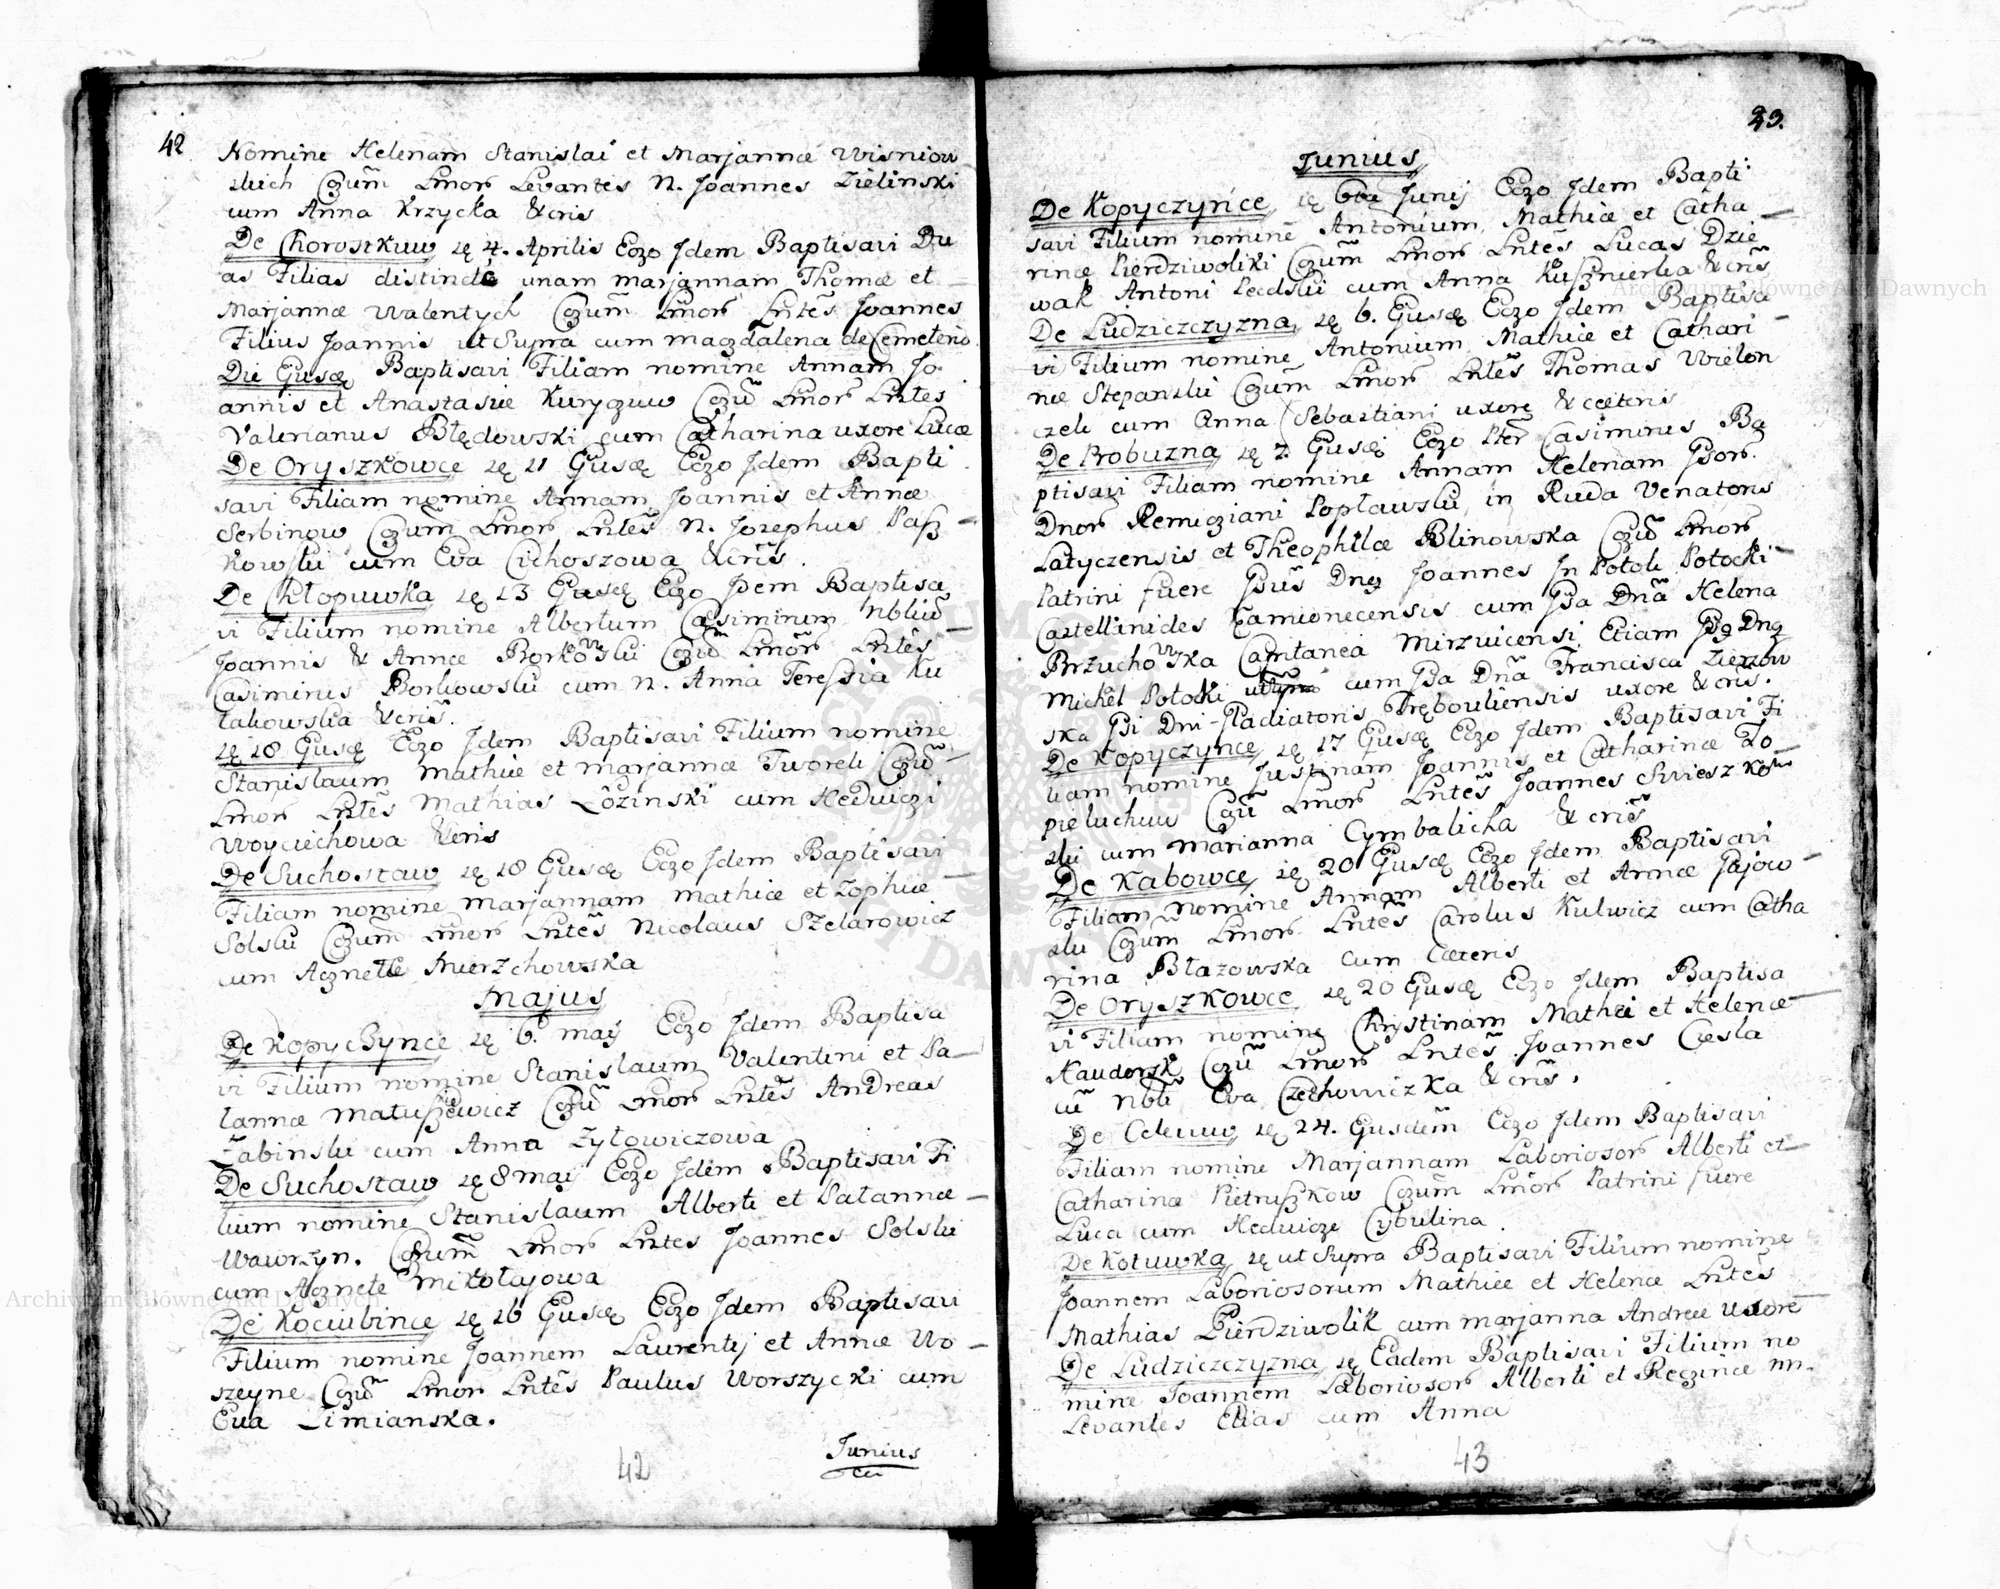 42
Nomine Helenam Stanislai et Marjannæ Wisniow
skich Cgũm Lmor Levantes N. Joannes Zielinski
cum Anna Krzycka &cris
De Chorostkuw 4. Aprilis Ego Jdem Baptisavi Du
as Filias distincte unam marjannam Thomæ et
Marjannæ Walentych Cgũm Lmor Lntẽs Joannes
Filius Joannis ut Supra cum magdalena de Cemeterio
Die Ejusdę Baptisavi Filiam nomine Annam Jo
annis et Anastasiæ Kuryguw Cgũ Lmor Lntes
Valerianus Błędowski cum Catharina uxore Lucæ
De Oryszkowce 21 Ejusdę Ego Jdem Bapti
savi Filiam nomine Annam Joannis et Annæ
Serbinow Cgũm Lmor Lntẽs N. Josephus Paß
kowski cum Eva Cichoszowa &cris.
De Chłopuwka 23 Ejusdę Ego Jdem Baptisa
vi Filium nomine Albertum Casimirum Nbliũ
Joannis & Annæ Borkowski Cgũ Lmor Lntẽs
Casimirus Borkowski cum N. Anna Teressia Ku
lakowska &cris.
28 Ejusdę Ego Jdem Baptisavi Filium nomine
Stanislaum Mathiæ et marjannæ Tworek Cgũ
Lmor Lntẽs Mathias Łozinski cum Hedwigi
Woyciechowa &cris
De Suchostaw 28 Ejusdę Ego Jdem Baptisavi
Filiam nomine marjannam mathiæ et Zophiæ
Solski Cgũm Lmor Lntẽs Nicolaus Szelarowicz
cum Agnete Mierzchowska
Majus
De Kopyczynce 6. maij Ego Jdem Baptisa
vi Filium nomine Stanislaum Valentini et Pa
lannæ Matußiewicz Cgũ Lmor Lntẽs Andreas
Zabinski cum Anna Zyłowiczowa
De Suchostaw 8 maij Ego Jdem Baptisavi Fi
lium nomine Stanislaum Alberti et Pałannæ
Wawrzyn. Cgũm Lmor Lntes Joannes Solski
cum Agnete Mikołajowa
De Kociubince 16 Ejusdę Ego Jdem Baptisavi
Filium nomine Joannem Laurentij et Annæ Wo
szeyne Cgũ Lmor Lntẽs Paulus Worszycki cum
Eva Zimianska.
Junius
42
43.
Junius
De Kopyczynce 6ta Junij Ego Jdem Bapti
savi Filium nomine Antonium Mathiæ et Catha
rinæ Pierdziwolski Cgũm Lmor Lntẽs Lucas Dzie
wak Antoni Leedski cum Anna Kußnierka &cris
De Ludziczczyzna 6. Ejusdę Ego Jdem Baptisa
vi Filium nomine Antonium Mathiæ et Cathari
næ Stepanski Cgũm Lmor Lntẽs Thomas Wielon
czek cum Anna Sebastiani uxore & cæteris
De Probuzna 7 Ejusdę Ego Pter Casimirus Ba
ptisavi Filiam nomine Annam Helenam Gsor.
Dnor Remigiani Popławski in Ruda Venatoris
Latyczensis et Theophilæ Blinowska Cgũ Lmor
Patrini fuere Gsus Dnus Joannes Jn Potok Potocki
Castellinides Camionecensis cum Gsa Dña Helena
Brzuchowska Capitanea Mirzwicensi Etiam Gsg Dng
Michel Potocki cum Gsa Dña Francisca Zierzow
ska Gsi Dni Gladiatoris Trębouliensis uxore &cris.
De Kopyczynce 17 Ejusdę Ego Jdem Baptisavi Fi
liam nomine Justinam Joannis et Catharinæ Zo
pieluchuw Cgũ Lmor Lntẽs Joannes Swieszkow
ski cum Marianna Cymbalicha &cris
De Kabowce 20 Ejusdę Ego Jdem Baptisavi
Filiam nomine Annam Alberti et Annæ Gajow
ski Cgũm Lmor Lntẽs Carolus Kulwicz cum Catha
rina Błazowska cum Cæteris
De Oryszkowce 20 Ejusdę Ego Jdem Baptisa
vi Filiam nomine Chrystinam Mathei et Helenæ
Haudorsk Cgũ Lmor Lntẽs Joannes Ciesla
cũ Nbli Eva Czechowiczka &cris.
De Celeiuw 24. Ejusdem Ego Jdem Baptisavi
Filiam nomine Marjannam Laboriosor Alberti et
Catharinæ Pietrußkow Cgũm Lmor Patrini fuere
Luca cum Hedwige Cybulina.
De Kotuwka ut Supra Baptisavi Filium nomine
Joannem Laboriosorum Mathiæ et Helenæ Lntẽs
Mathias Pierdziwolik cum marjanna Andreæ uxore
De Ludziczczyzna Eadem Baptisavi Filium no
mine Joannem Laboriosor Alberti et Reginæ nn.
Levantes Elias cum Anna
43
Archiwum Główne Akt Dawnych
Archiwum Główne Akt Dawnych